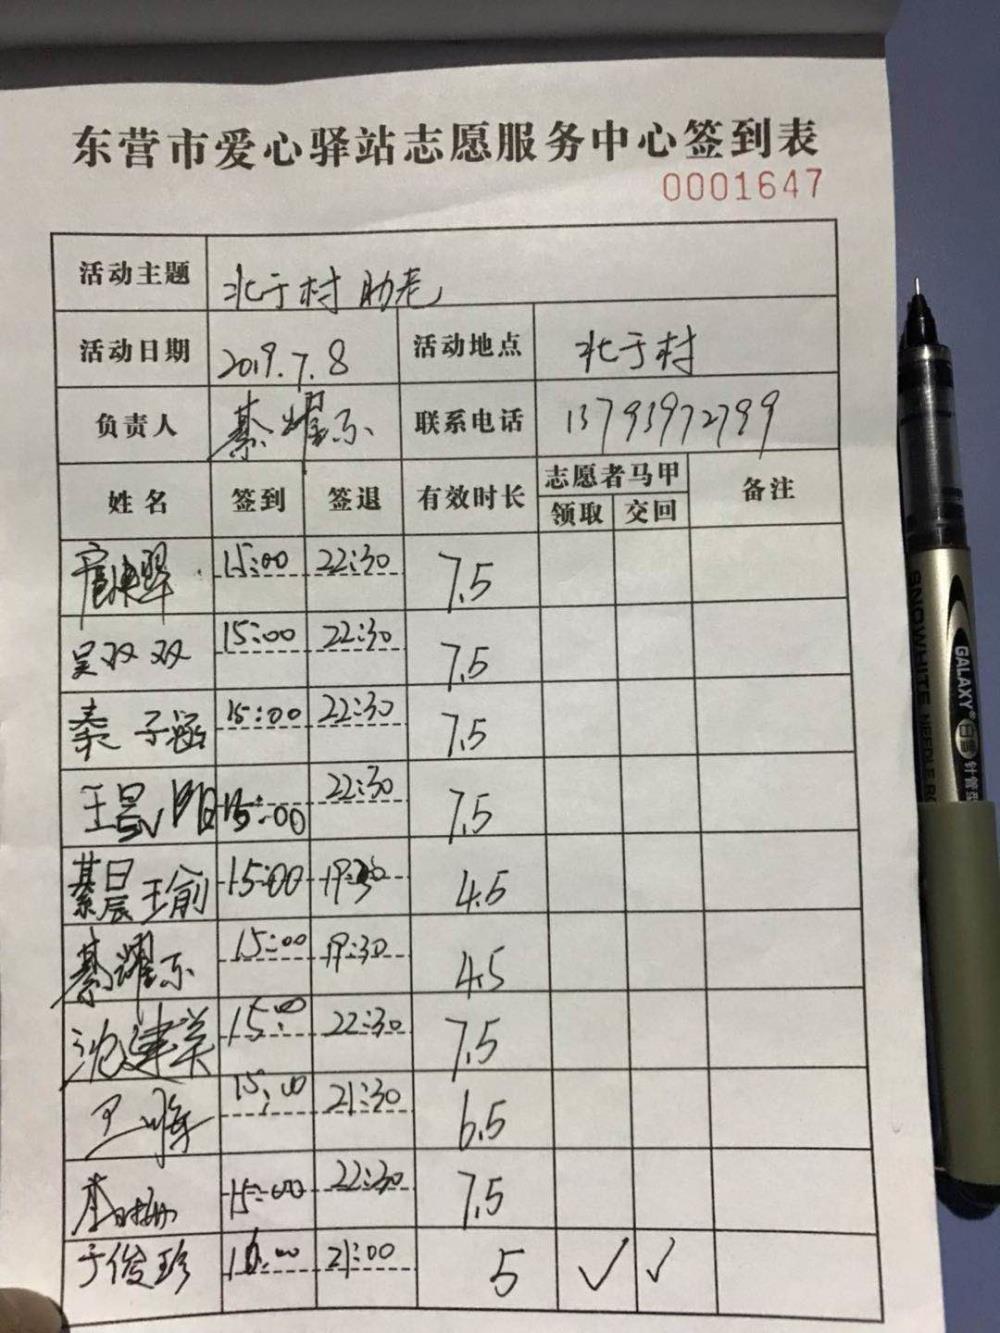 东营市爱心驿站志愿服务中心签到表
0001647
活动主题 北于村 助老
活动日期 2019.7.8 活动地点 北于村
负责人 綦耀东 联系电话 13793972799
姓名 签到 签退 有效时长 志愿者马甲 备注
领取 交回
15:00 22:30 7.5
吴双双 15:00 22:30 7.5
秦子涵 15:00 22:30 7.5
王昊阳 15:00 22:30 7.5
綦晨瑜 15:00 19:30 4.5
綦耀东 15:00 19:30 4.5
沈建美 15:00 22:30 7.5
15:00 21:30 6.5
15:00 22:30 7.5
于俊珍 16:00 21:00 5 ✓ ✓
SNOWHITE NEEDLE RO
GALAXY®
白雪
针管型